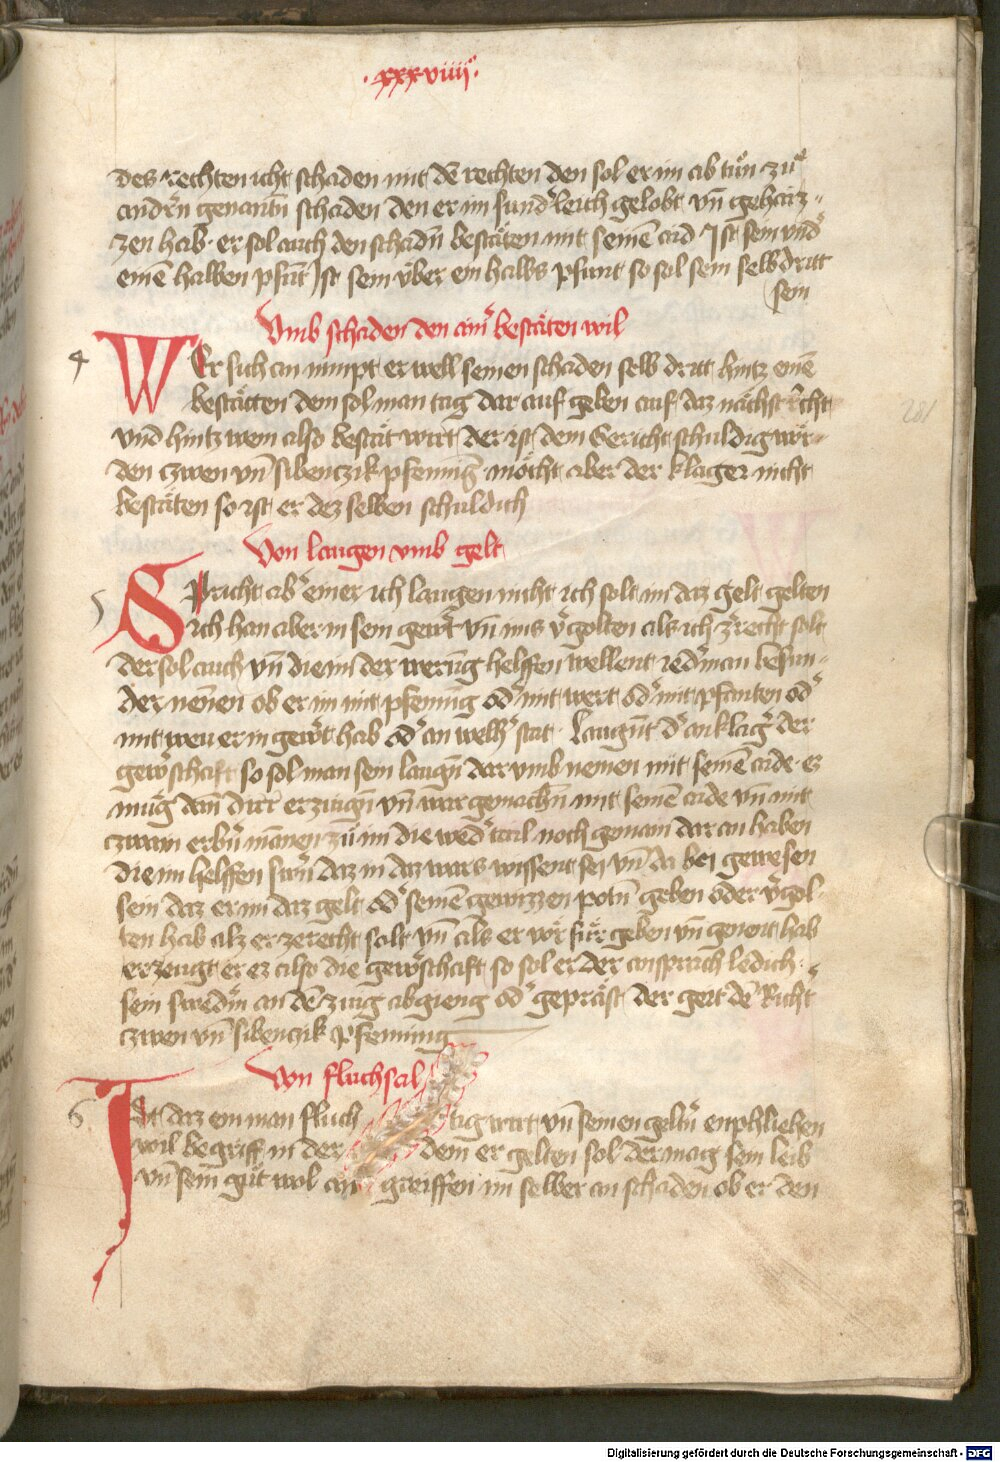 .xxxviiii°.
des rechten icht schaden mit dē rechten den sol er im ab tůn zu
andern genantn̄ schaden den er im sund͛leich gelobt vn̄ gehaiz-
zen hab. er sol auch den schadn̄ bestäten mit seinē aid Ist sein vnd͛
einē halben pfūt Ist sein über ein halbs pfunt so sol sein selb dritt
sein
Vmb schaden den ain͛ bestäten wil
4
WEr sich an nimpt er well seinen schaden selb dritt hintz einē
bestätten dem sol man tag dar auf geben auf daz nächst r͛cht
vnd hintz wem also bestät wirt der ist dem Gericht schuldig wor-
den czwen vn̄ sibenczik pfenning möcht aber der klager nicht
bestäten so ist er dez selben schuldich
Von laugen vmb gelt
5
SPricht ab͛ einer ich laugen nicht ich solt im daz gelt gelten
ich han aber in sein gew͛t vn̄ ims v͛golten als ich zerecht solt
der sol auch vn̄ die im der werūg helffen wellent ied͛man besun-
der nennen ob er im mit pfenning od͛ mit wert od͛ mit pfanten od͛
mit weu er in gew͛t hab od͛ an welh͛ stat. Laugn̄t d͛ anklag͛ der
gew͛schaft so sol man sein laugn̄ dar vmb nemen mit seinē aide. ez
mug dan̄ dirr erzeugn̄ vn̄ war gemachn̄ mit seinē aide vn̄ mit
czwain erbn̄ mānen zu im die wed͛ tail noch gemain dar an haben
die im helffen swern̄ daz in daz wars wissent sei vn̄ da bei gewesen
sein daz er im daz gelt od͛ seinē gewizzen potn̄ geben oder v͛gol-
ten hab alz er zerecht solt vn̄ als er vor für geben vn̄ genent hab
erzeugt er ez also die gew͛schaft so sol er der ansprach ledich
sein swed͛m an dē zeug abgieng od͛ gepräst der geit dē Richt͛
czwen vn̄ sibenczik pfenning
Von fluchsal
6
Ist daz ein man fluch tig wirt vn̄ seinen geltn̄ enphliehen
wil begriff in der dem er gelten sol der mag sein leib
vn̄ sein gut wol an greiffen im selber an schaden ob er den
281
Digitalisierung gefördert durch die Deutsche Forschungsgemeinschaft - DFG